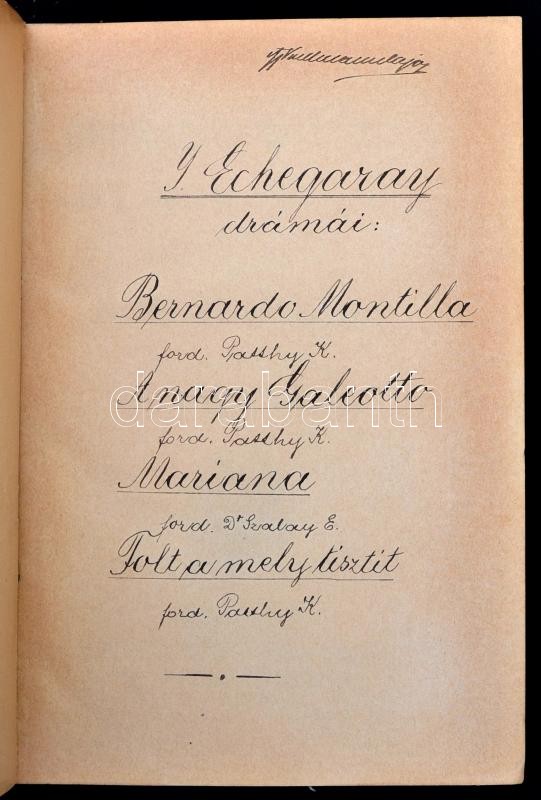 J. Echegaray
drámái:
Bernardo Montilla
ford. Patthy K.
A nagy Galeotto
darabanth
ford. Patthy K.
Mariana
ford. Dr Szalay E.
Folt a mely tisztit
ford. Patthy K.